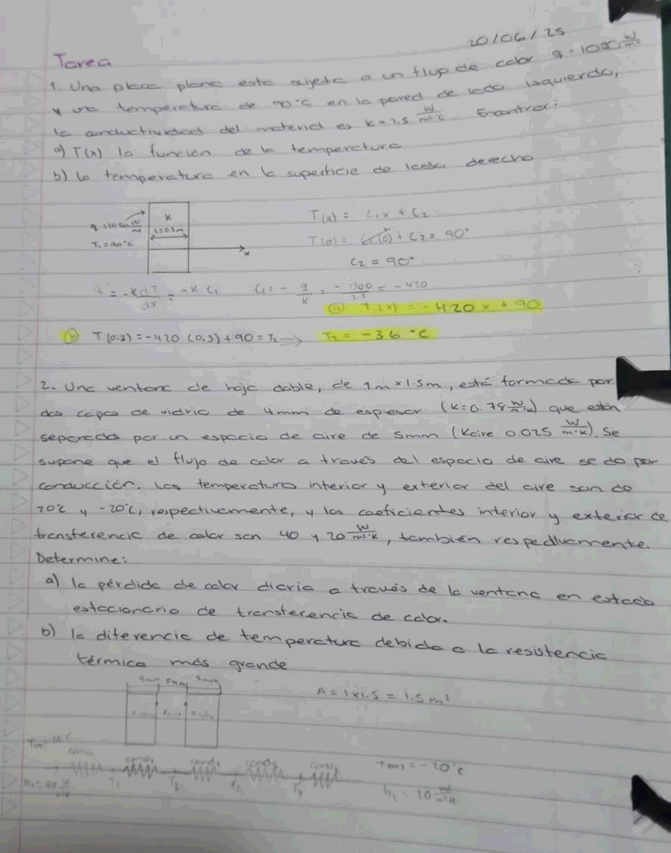 20/06/25
Tarea
1. Una placa plana esta sujeta a un flujo de calor q = 1050 W/m²
y una temperatura de 90°C en la pared de lado izquierdo,
la conductividad del material es k = 2.5 W/m·°C Encontrar:
a) T(x) la función de la temperatura
b) la temperatura en la superficie de lado derecho
k
L=0.3m
T₁ = 90°C
x
T(x) = C₁x + C₂
T(0) = C₁(0) + C₂ = 90°
C₂ = 90°
q = -k dT/dx = -k C₁ C₁ = - q/k = - /2.5 = -420
a) T(x) = -420x + 90
b) T(0,3) = -420 (0,3) + 90 = T₂ → T₂ = -36 °C
2. Una ventana de hoja doble, de 1m x 1.5m, está formada por
dos capas de vidrio de 4mm de espesor (k=0.78 W/m·k) que están
separadas por un espacio de aire de 5mm (kaire 0.025 W/m·k). Se
supone que el flujo de calor a través del espacio de aire se da por
conducción. Las temperaturas interior y exterior del aire son de
20°C y -20°C, respectivamente, y los coeficientes interior y exterior de
transferencia de calor son 40 y 20 W/m²·k, también respectivamente.
Determine:
a) la pérdida de calor diaria a través de la ventana en estado
estacionario de transferencia de calor.
b) la diferencia de temperatura debido a la resistencia
térmica más grande
4mm 5mm 4mm
A = 1x1.5 = 1.5 m²
cond₁ cond₂ cond₃
T₁ T₂ T₃ T₄
h₁ = 40 W/m²k
T∞₂ = -20°C
h₂ = 20 W/m²k